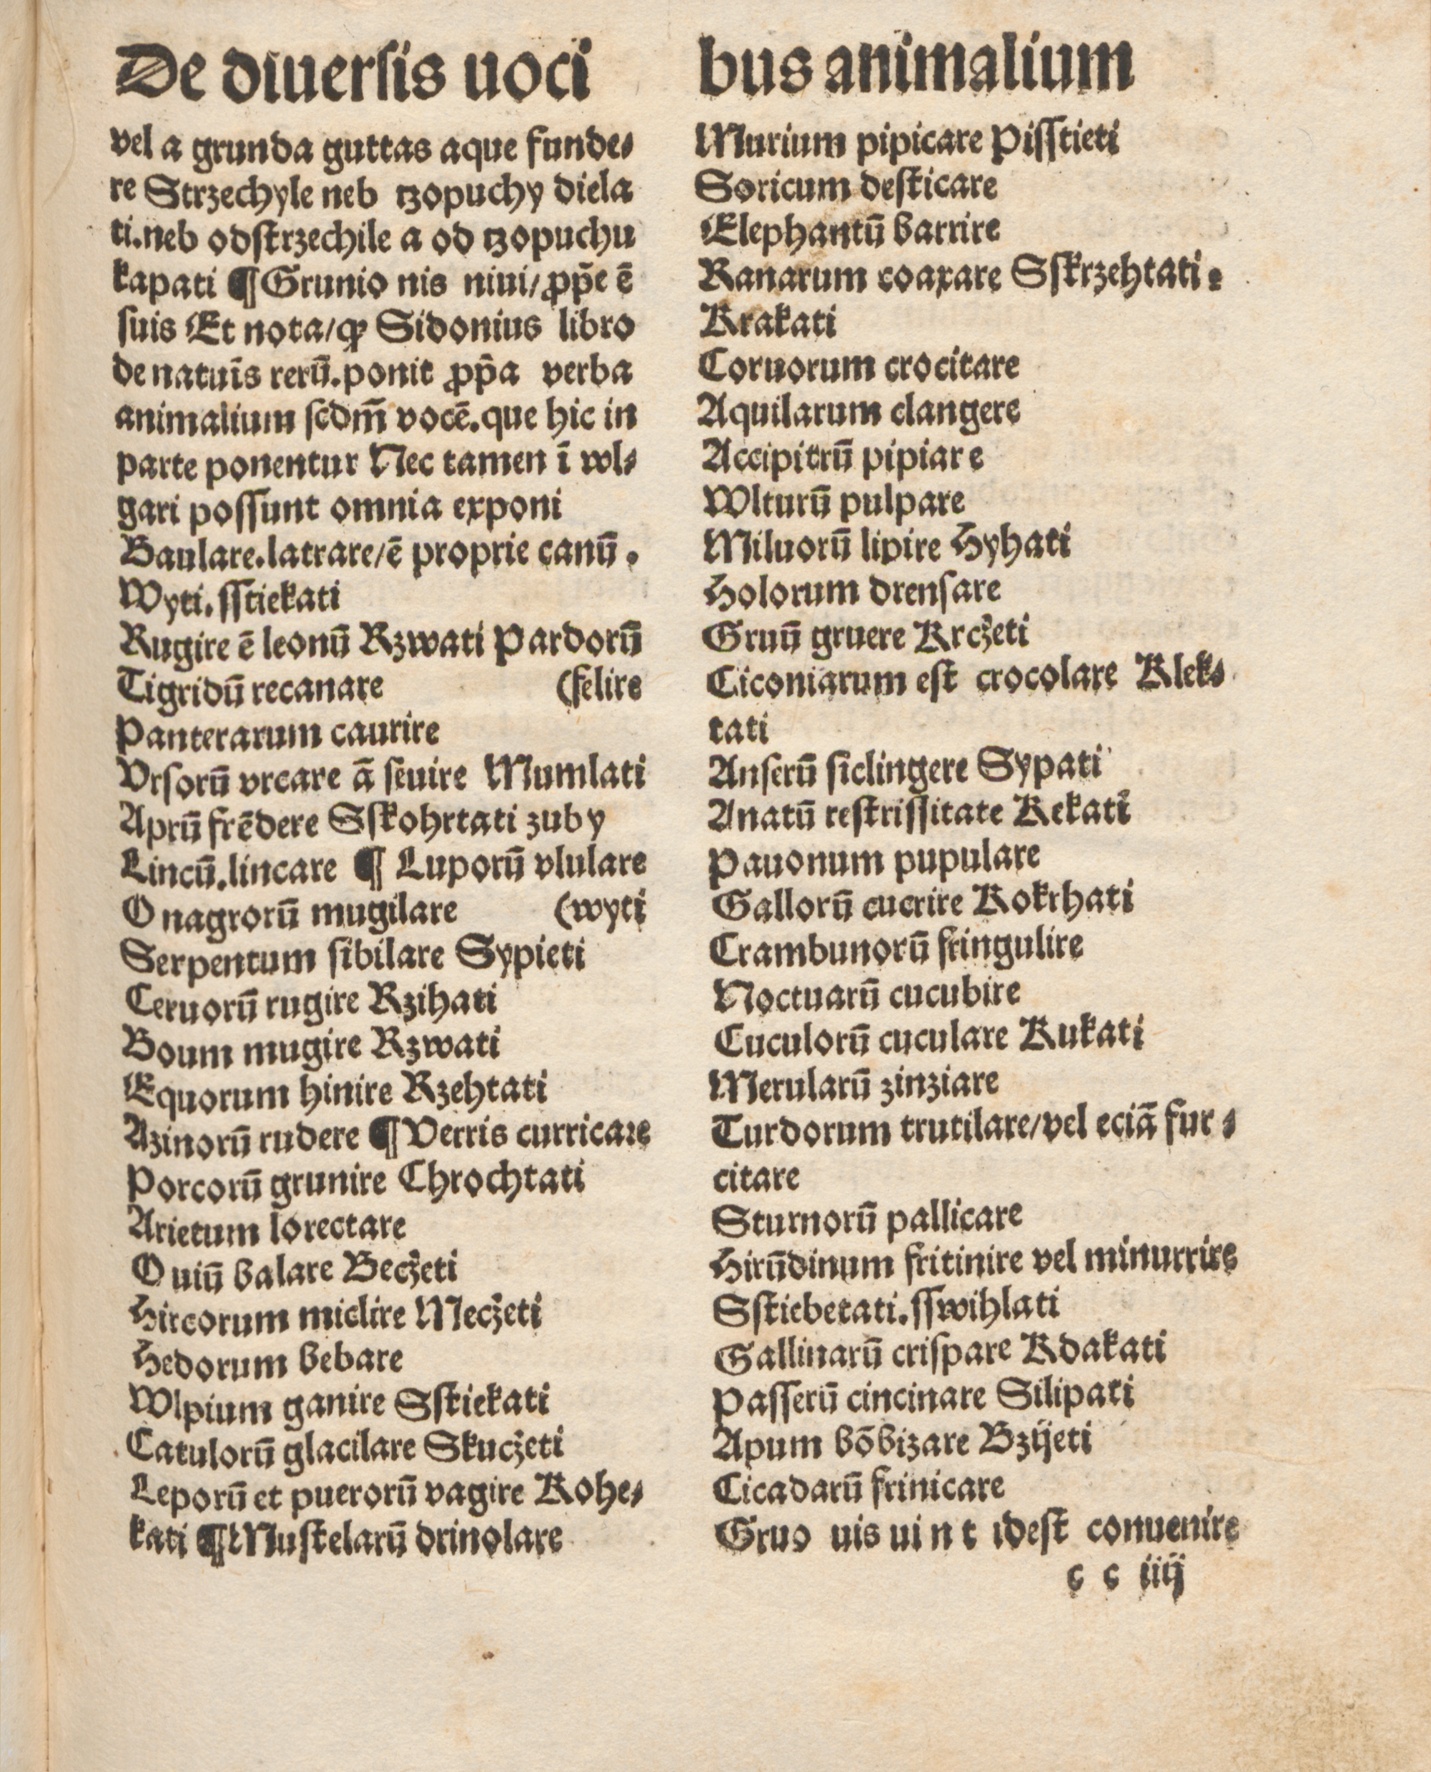 De diuersis uoci
vel a grunda guttas aque funde⸗
re Strzechyle neb tzopuchy diela
ti.neb odstrzechile a od tzopuchu
kapati ¶ Grunio nis niui/ꝓp̄e ē
suis Et nota/ꝙ Sidonius libro
de natuīs rerū.ponit ꝓp̄a verba
animalium scdm̄ vocē.que hic in
parte ponentur Nec tamen ī wl⸗
gari possunt omnia exponi
Baulare.latrare/ē proprie canū.
Wyti.sstiekati
Rugire ē leonū Rzwati Pardorū
Tigridū recanare (felire
Panterarum caurire
Vrsorū vrcare ā seuire Mumlati
Aprū frēdere Sskohrtati zuby
Lincū.lincare ¶ Luporū vlulare
Onagrorū mugilare (wyti
Serpentum sibilare Sypieti
Ceruorū rugire Rzihati
Boum mugire Rzwati
Equorum hinire Rzehtati
Azinorū rudere ¶ Verris curricare
Porcorū grunire Chrochtati
Arietum lorectare
Ouiū balare Beczeti
Hircorum miclire Meczeti
Hedorum bebare
Wlpium ganire Sstiekati
Catulorū glacilare Skuczeti
Leporū et puerorū vagire Kohe⸗
kati ¶ Mustelarū drinolare
bus animalium
Murium pipicare Pisstieti
Soricum desticare
Elephantū barrire
Ranarum coaxare Sskrzehtati.
Krakati
Coruorum crocitare
Aquilarum clangere
Accipitrū pipiare
Wlturū pulpare
Miluorū lipire Hyhati
Holorum drensare
Gruū gruere Krczeti
Ciconiarum est crocolare Klek⸗
tati
Anserū siclingere Sypati
Anatū restrissitate Kekati
Pauonum pupulare
Gallorū cucrire Kokrhati
Crambunorū fringulire
Noctuarū cucubire
Cuculorū cuculare Kukati
Merularū zinziare
Turdorum trutilare/vel eciā fur⸗
citare
Sturnorū pallicare
Hirūdinum fritinire vel minurrire
Sstiebetati.sswihlati
Gallinarū crispare Kdakati
Passerū cincinare Silipati
Apum bōbizare Bzijeti
Cicadarū frinicare
Gruo uis ui n t idest conuenire
c c iiij